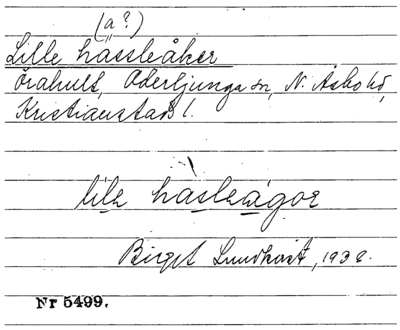 (a?)
Lille hassleåker
Örahult, Oderljunga sn, N. Åsbo hd,
Kristianstads l.
lilə hasləågor
Birget Lundkvist, 1936.
Nr 5499.